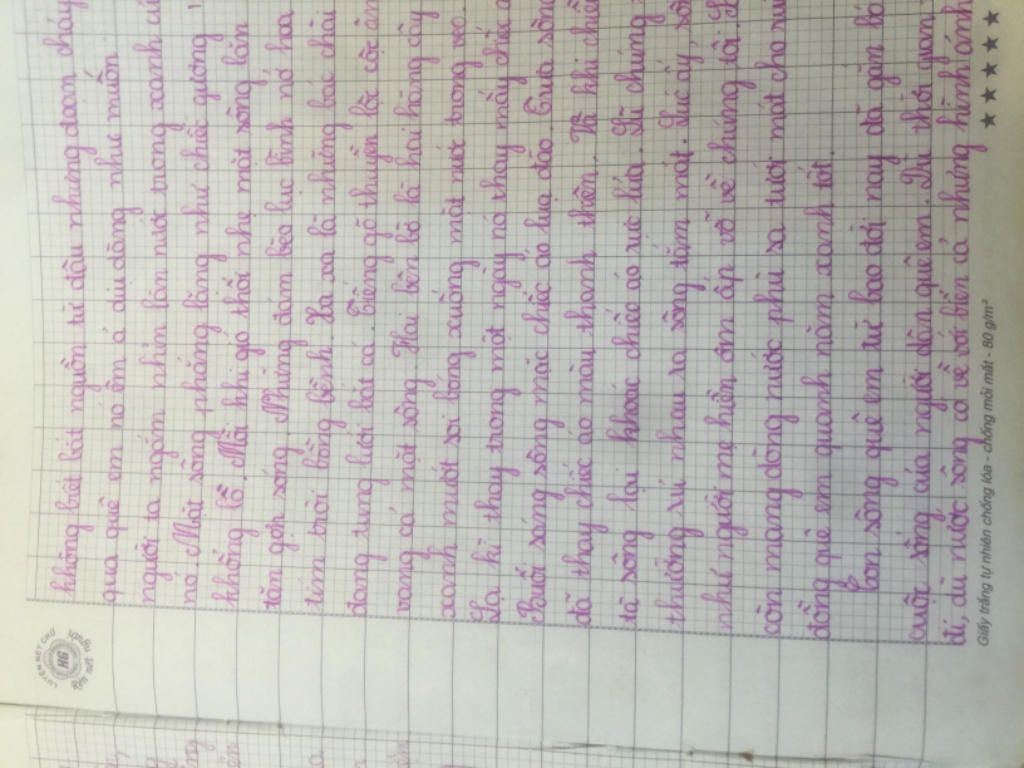 không biết bắt nguồn từ đâu nhưng đoạn chảy
qua quê em nó êm ả dịu dàng như muốn
người ta ngắm nhìn làn nước trong xanh củ
nó. Mặt sông phẳng lặng như chiếc gương
khổng lồ. Mỗi khi gió thổi nhẹ mặt sông lăn
tăn gợn sóng. Những đám bèo lục bình nở hoa
tím trôi bồng bềnh. Xa xa là những bác chài
đang tung lưới bắt cá. Tiếng gõ thuyền lộc cộc ên
vang cả mặt sông. Hai bên bờ là hai hàng cây
xanh mướt soi bóng xuống mặt nước trong veo.
Lạ kì thay trong một ngày nó thay mấy chiếc á
Buổi sáng sông mặc chiếc áo lụa đào. Trưa sông
đã thay chiếc áo màu thanh thiên. Và khi chiều
tà sông lại khoác chiếc áo rực lửa. Lũ chúng
thường rủ nhau ra sông tắm mát. Lúc ấy, sôn
như người mẹ hiền ôm ấp vỗ về chúng tôi. S
còn mang dòng nước phù sa tưới mát cho ru
đồng quê em quanh năm xanh tốt.
Con sông quê em từ bao đời nay đã gắn bó
cuộc sống của người dân quê em. Dù thời gian
đi, dù nước sông có về với biển cả nhưng hình ảnh
Giấy trắng tự nhiên chống lóa - chống mỏi mắt - 80 g/m²
LUYỆN NÉT CHỮ
RÈN NẾT NGƯỜI
HG